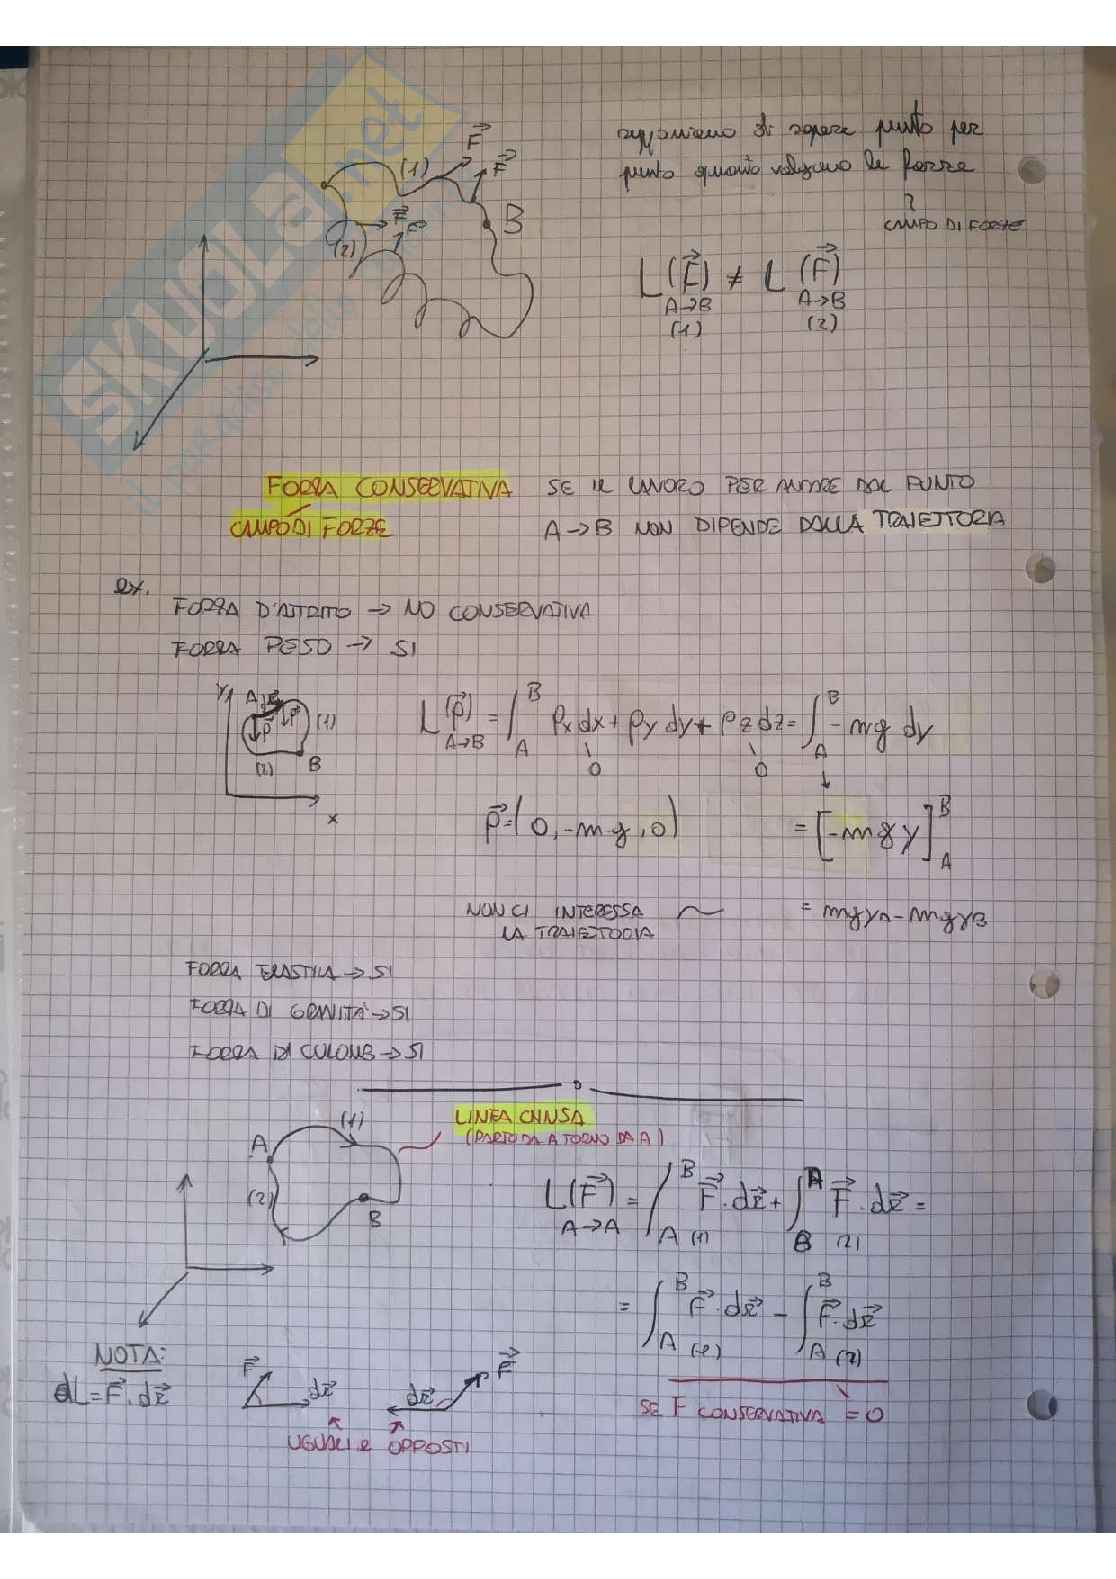 supponiamo di sapere punto per
punto quanto valgono le forze
CAMPO DI FORZE
F
(1)
F
B
F
(2)
F
L(F) ≠ L(F)
A→B A→B
(1) (2)
FORZA CONSERVATIVA SE IL LAVORO PER ANDARE DAL PUNTO
CAMPO DI FORZE A→B NON DIPENDE DALLA TRAIETTORIA
ex.
FORZA D'ATTRITO → NO CONSERVATIVA
FORZA PESO → SI
Y A (1)
P P
(2) B
x
L(P) = ∫_A^B Px dx + Py dy + Pz dz = ∫_A^B -mg dy
A→B
0 0
P = (0, -mg, 0) = [-mgy]_A^B
NON CI INTERESSA = mgyA - mgyB
LA TRAIETTORIA
FORZA ELASTICA → SI
FORZA DI GRAVITÀ → SI
FORZA DI COULOMB → SI
LINEA CHIUSA
(PARTO DA A TORNO DA A)
A (1)
(2) B
L(F) = ∫_A (1)^B F · dr + ∫_B (2)^A F · dr =
A→A
= ∫_A^B F · dr - ∫_A (2)^B F · dr
NOTA:
dL = F · dr
F dr dr F
SE F CONSERVATIVA = 0
UGUALI e OPPOSTI
SKUOLA.net